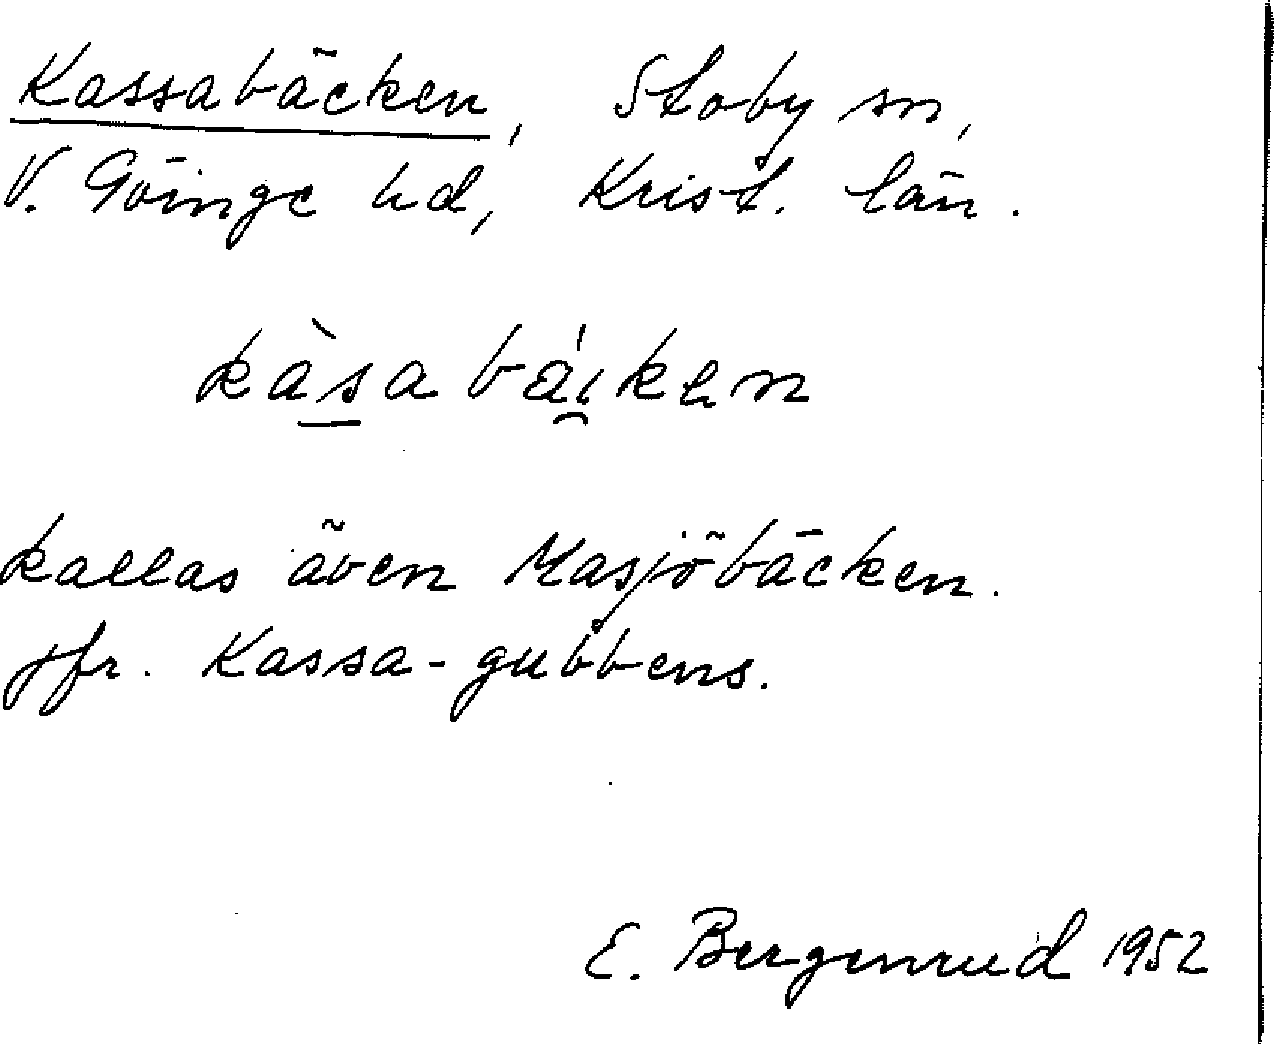 Kassabäcken, Stoby sn,
V. Göinge hd, Krist. län.
kàsabäiken
kallas även Masjöbäcken.
jfr. Kassa-gubbens.
E. Bergenrud 1952